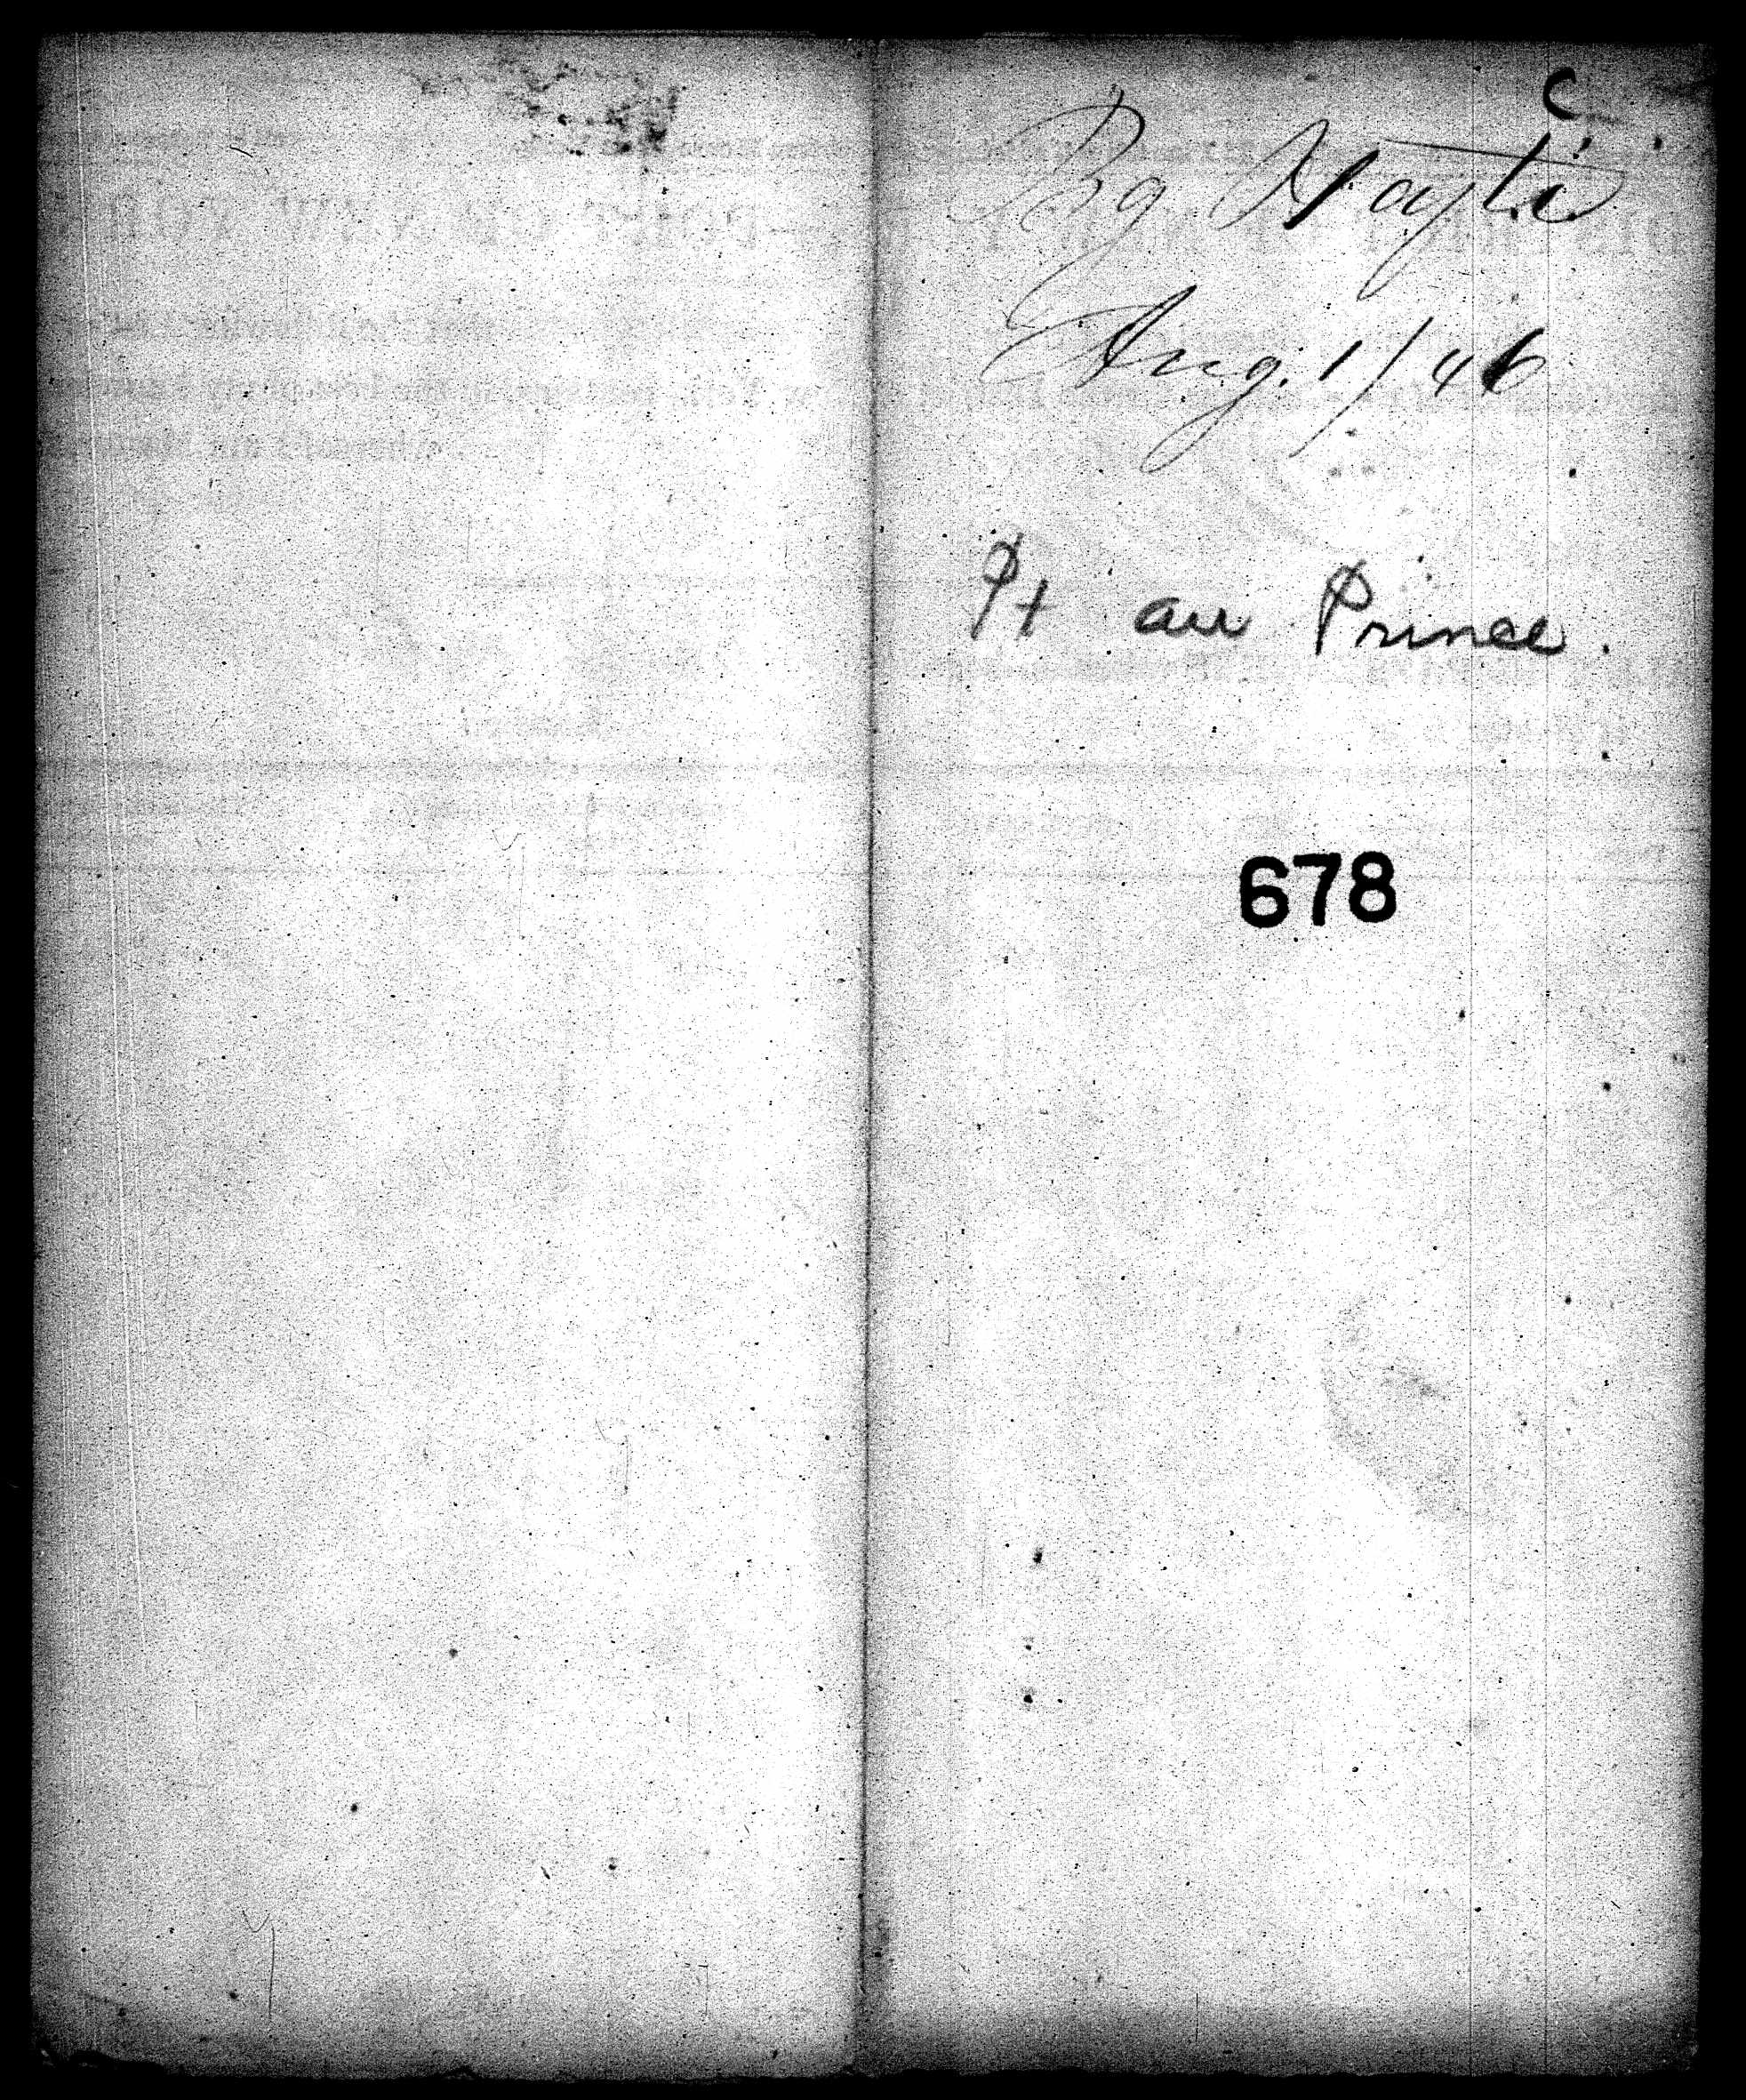 C
Bg Hayti
Aug. 1/46
Pt au Prince.
678